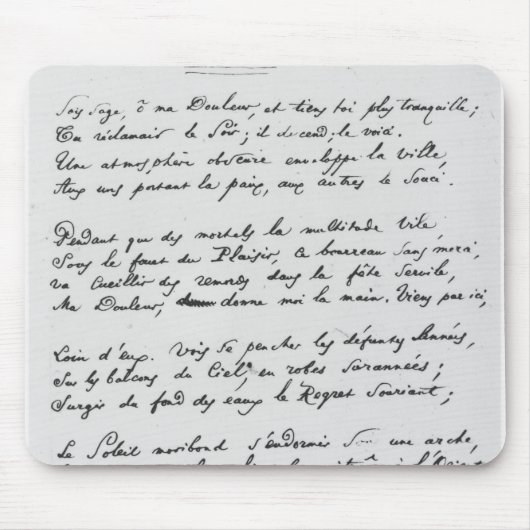 Sois sage, ô ma Douleur, et tiens toi plus tranquille;
Tu réclamais le Soir; il descend; le voici.
Une atmosphère obscure enveloppe la ville,
Aux uns portant la paix, aux autres le Souci.
Pendant que des mortels la multitude vile,
Sous le fouet du Plaisir, ce bourreau sans merci,
va cueillir des remords dans la fête servile,
Ma Douleur, donne moi la main. Viens par ici,
Loin d'eux. Vois se pencher les défuntes Années,
Sur les balcons du Ciel, en robes surannées;
Surgir du fond des eaux le Regret Souriant;
Le Soleil moribond s'endormir Sous une arche,
à l'Orient